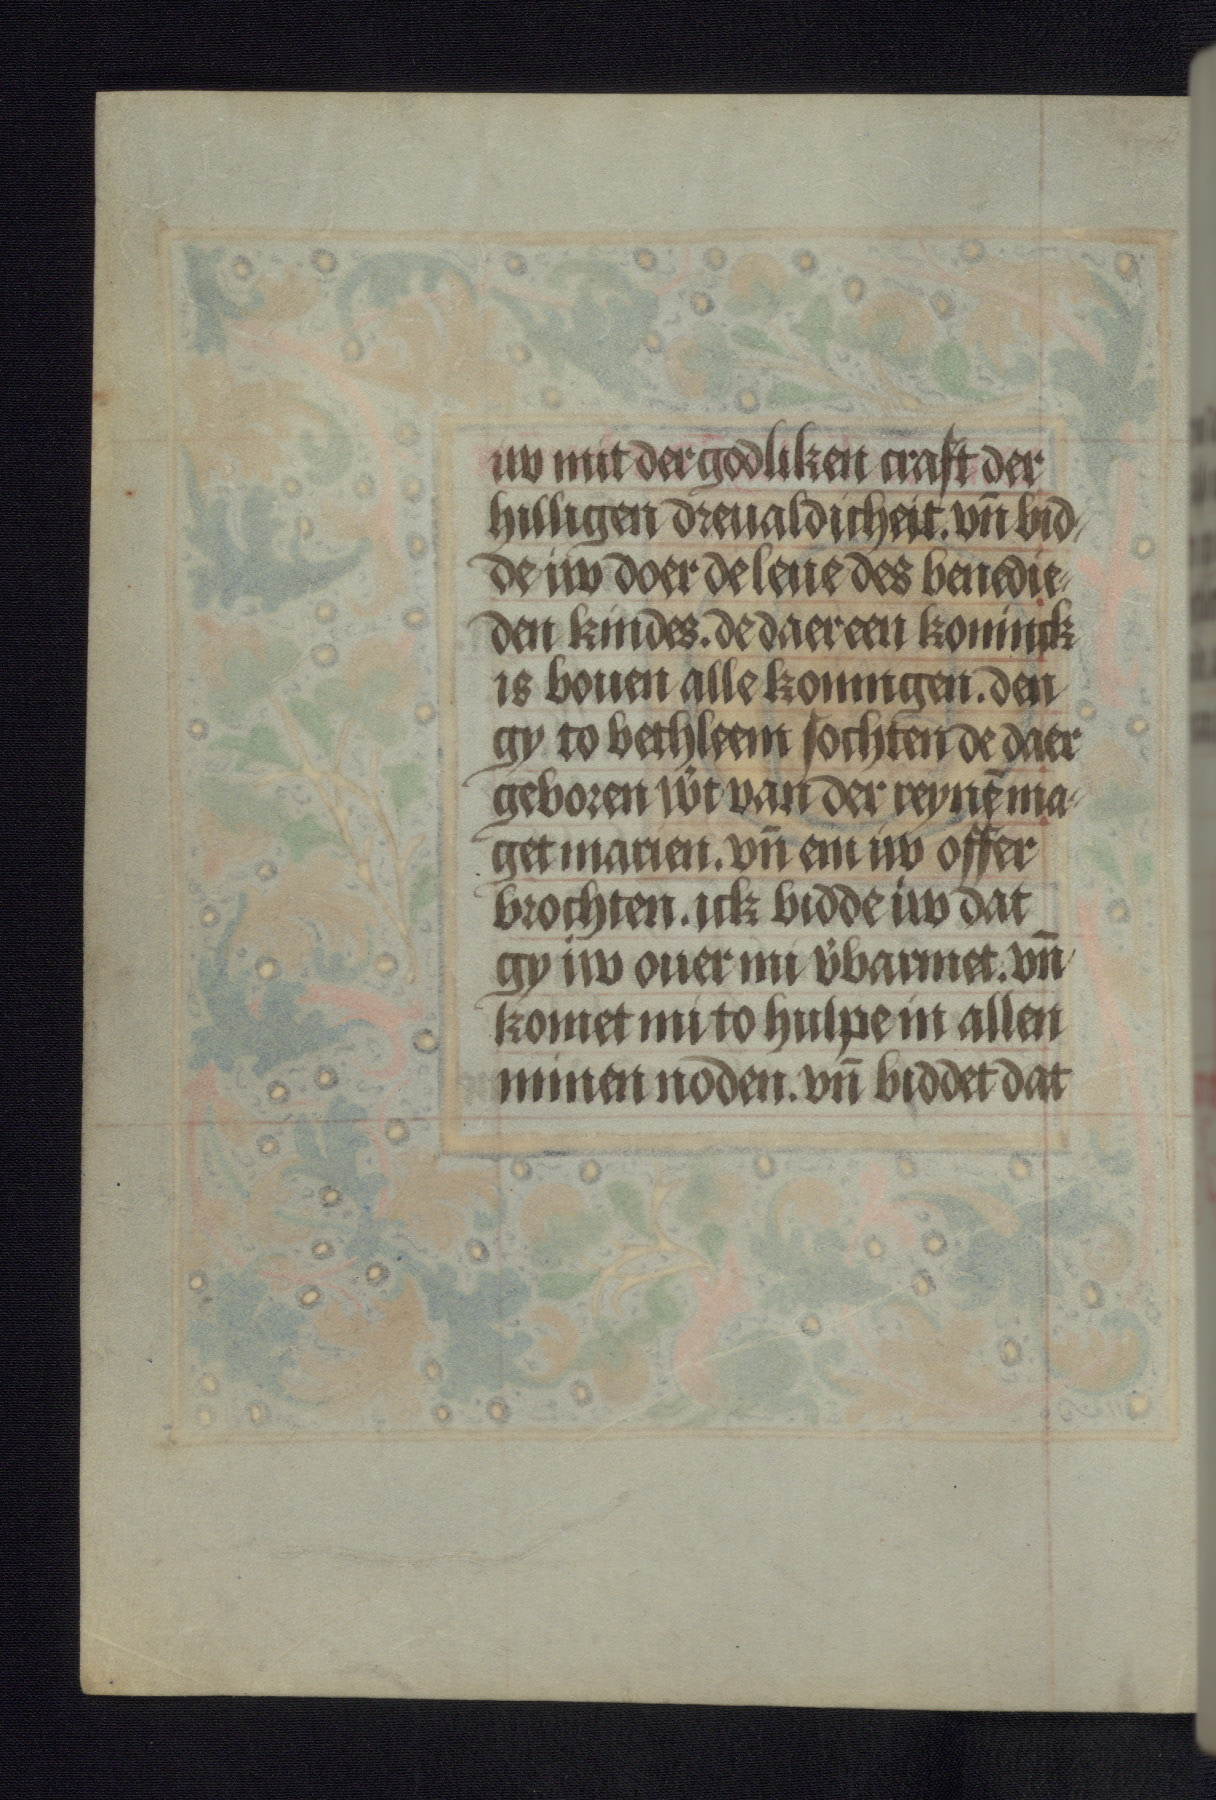 uw mit der godliken craft der
hilligen dreualdicheit. vn̄ bid-
de iuw doer de leue des benedie-
den kindes. de daer een koninck
is bouen alle koningen. den
gy to bethleem sochten de daer
geboren wͤrt van der reynē ma-
get marien. vn̄ em iuw offer
brochten. ick bidde iuw dat
gy iuw ouer mi v̓barmet. vn̄
komet mi to hulpe in allen
minen noden. vn̄ biddet dat